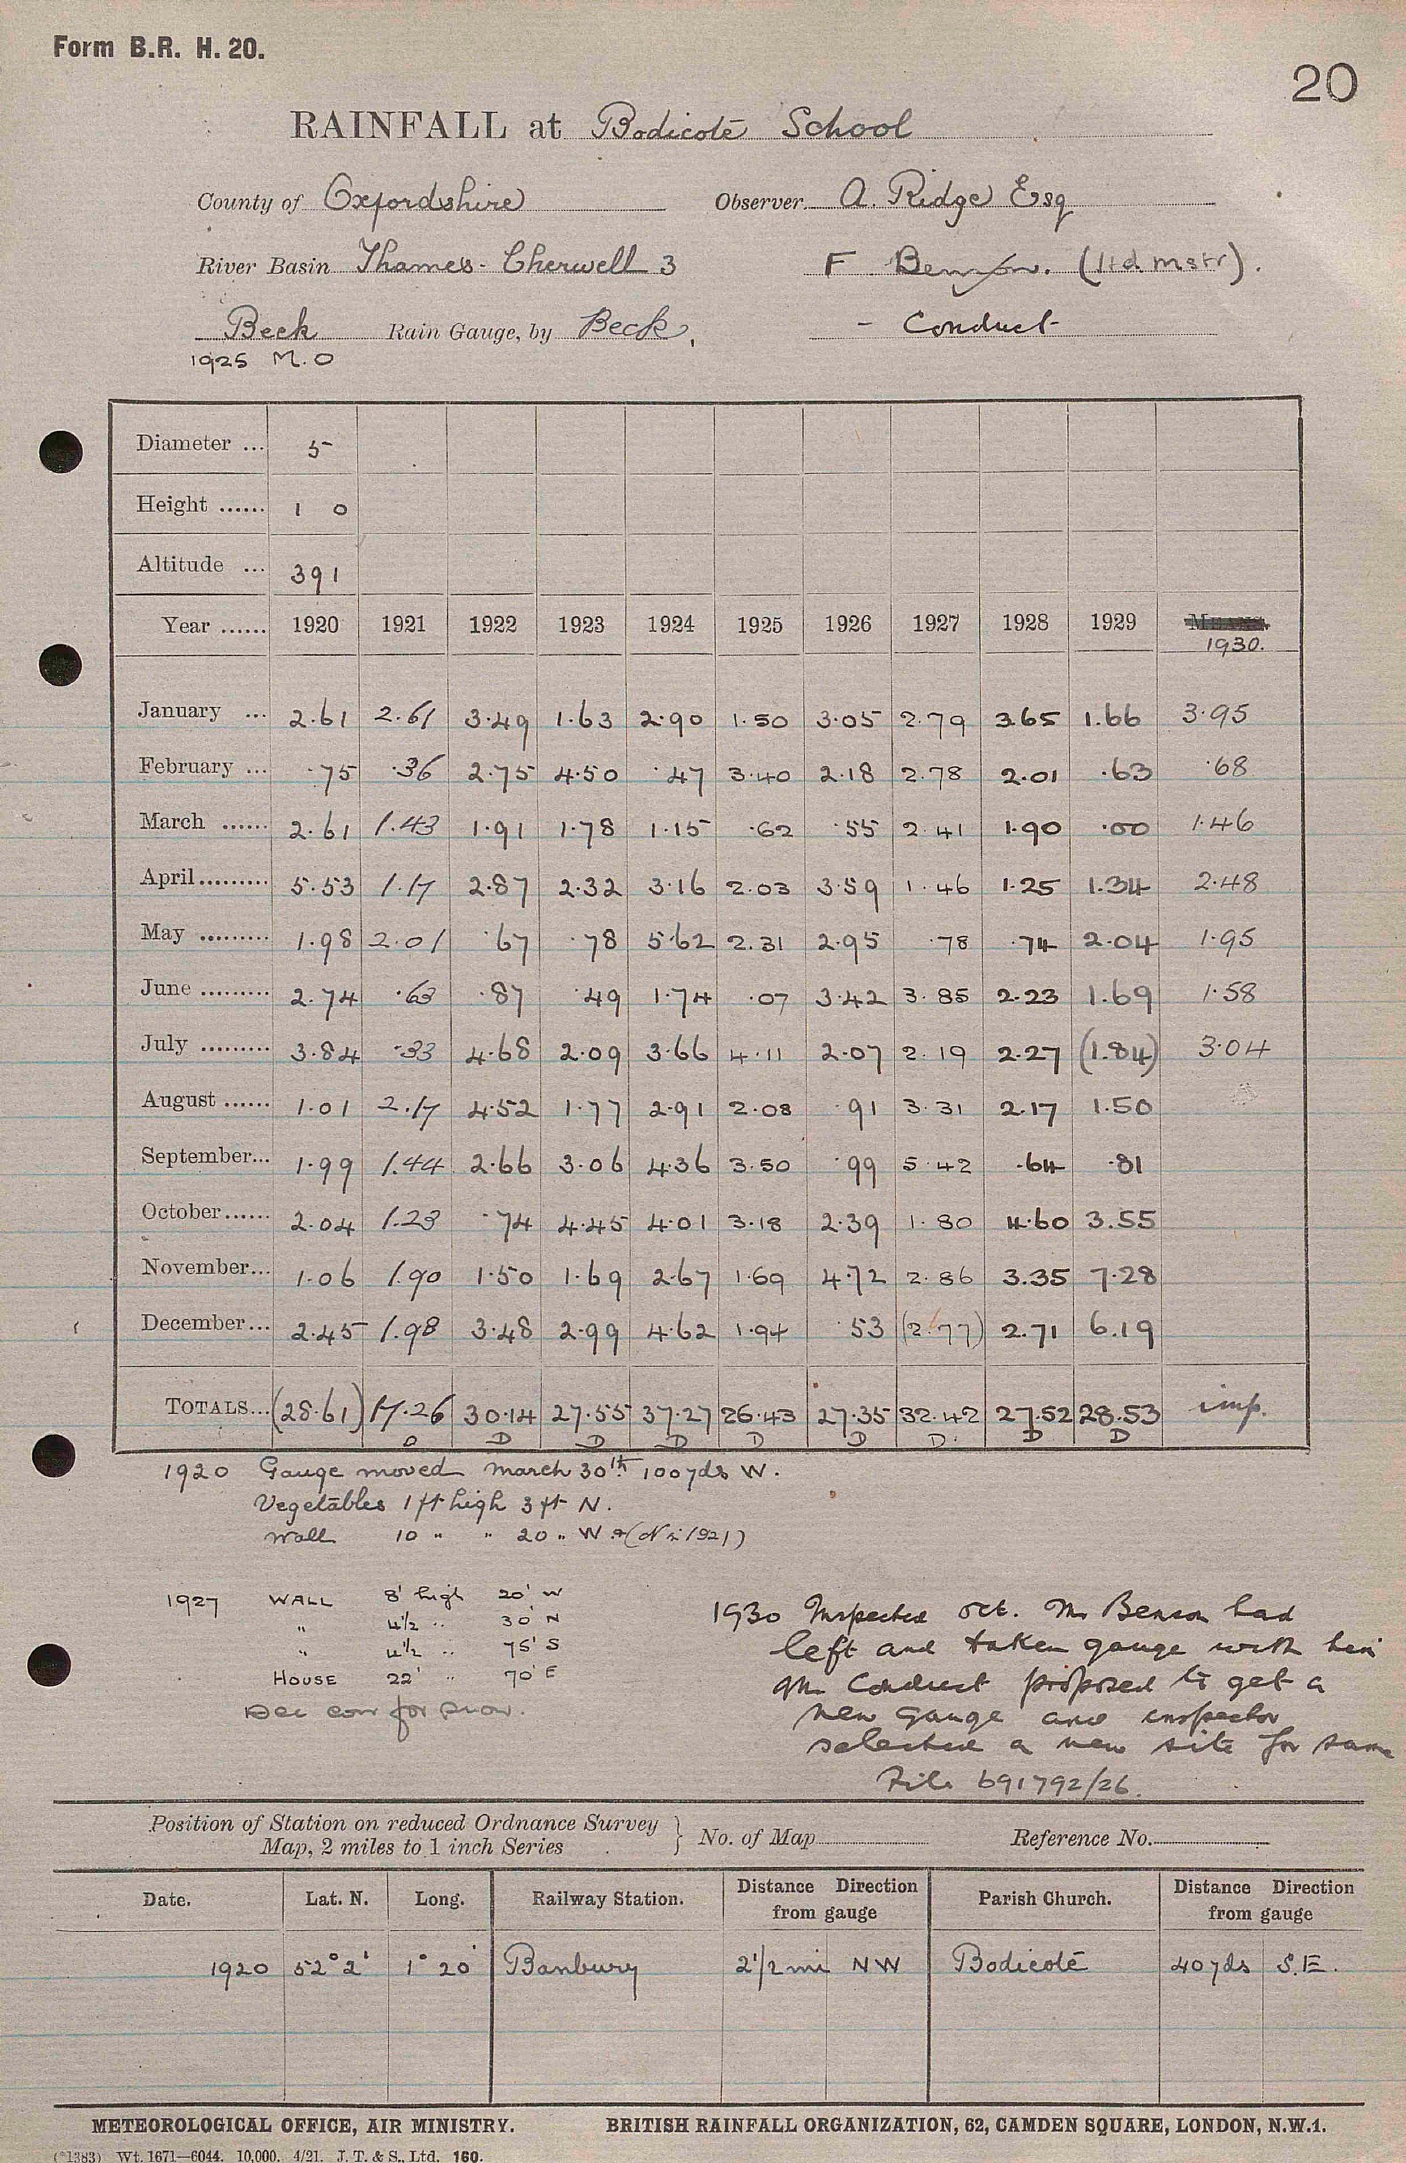 Form B.R. H. 20.
20
RAINFALL at Bodicote School
County of Oxfordshire Observer A. Ridge Esq
River Basin Thames - Cherwell 3 F Benson. (Hd Mstr).
Beck Rain Gauge, by Beck. - Conduct -
1925 M.O
Diameter ... 5
Height ...... 1 0
Altitude ... 391
Year ...... 1920 1921 1922 1923 1924 1925 1926 1927 1928 1929 1930.
January ... 2.61 2.61 3.49 1.63 2.90 1.50 3.05 2.79 3.65 1.66 3.95
February ... .75 .36 2.75 4.50 .47 3.40 2.18 2.78 2.01 .63 .68
March ...... 2.61 1.43 1.91 1.78 1.15 .62 .55 2.41 1.90 .00 1.46
April......... 5.53 1.17 2.87 2.32 3.16 2.03 3.59 1.46 1.25 1.34 2.48
May ......... 1.98 2.01 .67 .78 5.62 2.31 2.95 .78 .74 2.04 1.95
June ......... 2.74 .63 .87 .49 1.74 .07 3.42 3.85 2.23 1.69 1.58
July ......... 3.84 .33 4.68 2.09 3.66 4.11 2.07 2.19 2.27 (1.84) 3.04
August ...... 1.01 2.17 4.52 1.77 2.91 2.08 .91 3.31 2.17 1.50
September... 1.99 1.44 2.66 3.06 4.36 3.50 .99 5.42 .64 .81
October...... 2.04 1.23 .74 4.45 4.01 3.18 2.39 1.80 4.60 3.55
November... 1.06 1.90 1.50 1.69 2.67 1.69 4.72 2.86 3.35 7.28
December... 2.45 1.98 3.48 2.99 4.62 1.94 .53 (2.77) 2.71 6.19
TOTALS... (28.61) 17.26 30.14 27.55 37.27 26.43 27.35 32.42 27.52 28.53 imp.
D D D D D D D D D
1920 Gauge moved March 30th 100 yds W.
Vegetables 1 ft high 3 ft N.
Wall 10 " " 20 " W & (N in 1921)
1927 WALL 8' high 20' W
" 4½ " 30' N
" 4½ " 75' S
HOUSE 22' " 70' E
Dec corr for snow.
1930 Inspected Oct. Mr Benson had
left and taken gauge with him
Mr Conduct proposed to get a
new gauge and inspector
selected a new site for same
File 691792/26.
Position of Station on reduced Ordnance Survey
Map, 2 miles to 1 inch Series } No. of Map Reference No.
Date. Lat. N. Long. Railway Station. Distance Direction from gauge Parish Church. Distance Direction from gauge
1920 52° 2' 1° 20' Banbury 2½ mi NW Bodicote 40 yds S.E.
METEOROLOGICAL OFFICE, AIR MINISTRY. BRITISH RAINFALL ORGANIZATION, 62, CAMDEN SQUARE, LONDON, N.W.1.
(*1383) Wt. 1671—6044. 10,000. 4/21. J. T. & S., Ltd. 160.